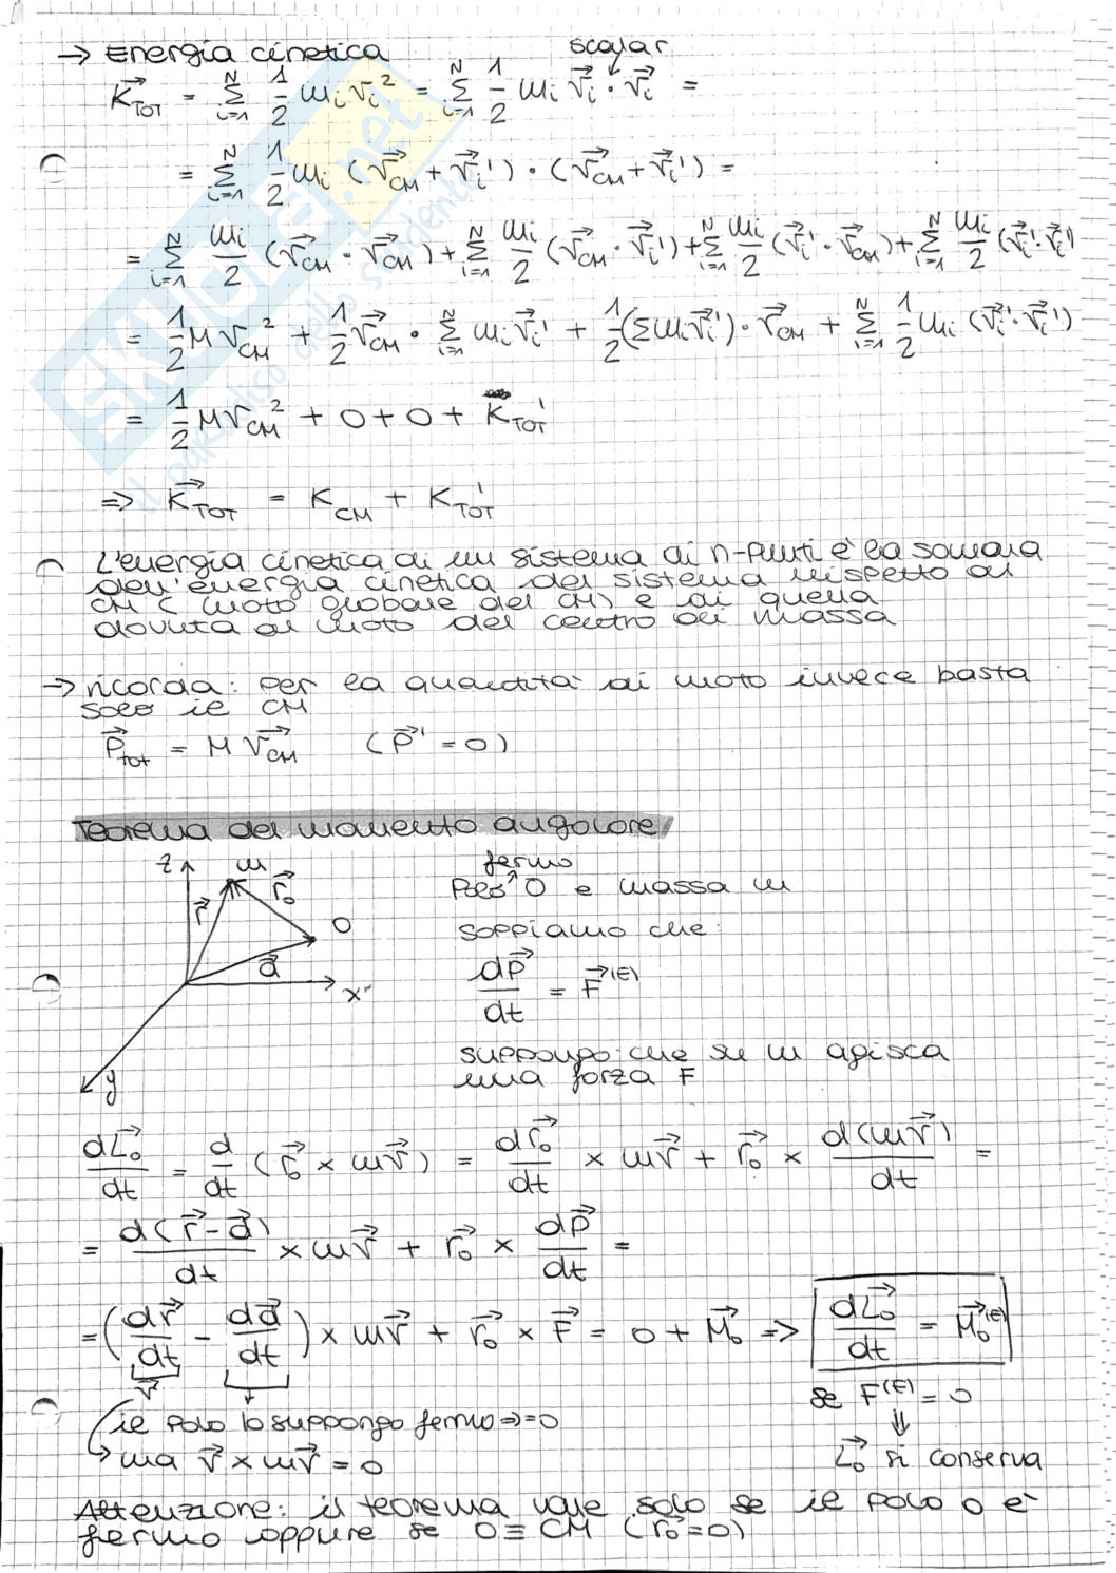 → Energia cinetica
scalar
K⃗_TOT = Σ_{i=1}^{N} 1/2 m_i v_i² = Σ_{i=1}^{N} 1/2 m_i v⃗_i · v⃗_i =
= Σ_{i=1}^{N} 1/2 m_i (v⃗_CM + v⃗_i') · (v⃗_CM + v⃗_i') =
= Σ_{i=1}^{N} m_i/2 (v⃗_CM · v⃗_CM) + Σ_{i=1}^{N} m_i/2 (v⃗_CM · v⃗_i') + Σ_{i=1}^{N} m_i/2 (v⃗_i' · v⃗_CM) + Σ_{i=1}^{N} m_i/2 (v⃗_i' · v⃗_i')
= 1/2 M v_CM² + 1/2 v⃗_CM · Σ_{i=1}^{N} m_i v⃗_i' + 1/2 (Σ m_i v⃗_i') · v⃗_CM + Σ_{i=1}^{N} 1/2 m_i (v⃗_i' · v⃗_i')
= 1/2 M v_CM² + 0 + 0 + K_TOT'
=> K⃗_TOT = K_CM + K_TOT'
L'energia cinetica di un sistema di n-punti è la somma
dell'energia cinetica del sistema rispetto al
CM (moto globale del CM) e di quella
dovuta al moto del centro di massa
→ ricorda: per la quantità di moto invece basta
solo il CM
P⃗_tot = M v⃗_CM (P⃗' = 0)
Teorema del momento angolare
z m r⃗_0 r⃗ O a⃗ x y
fermo
Polo O e massa m
sappiamo che:
dP⃗/dt = F⃗^(E)
suppongo che su m agisca
una forza F
dL⃗_0/dt = d/dt (r⃗_0 × m v⃗) = dr⃗_0/dt × m v⃗ + r⃗_0 × d(m v⃗)/dt =
= d(r⃗ - a⃗)/dt × m v⃗ + r⃗_0 × dP⃗/dt =
= (dr⃗/dt - da⃗/dt) × m v⃗ + r⃗_0 × F⃗ = 0 + M⃗_0 => dL⃗_0/dt = M⃗_0^(E)
v⃗
se F^(E) = 0
il polo lo suppongo fermo => = 0
⇓
ma v⃗ × m v⃗ = 0
L⃗_0 si conserva
Attenzione: il teorema vale solo se il polo O è
fermo oppure se O ≡ CM (r⃗_0 = 0)
SKUOLA.net
il paradiso dello studente